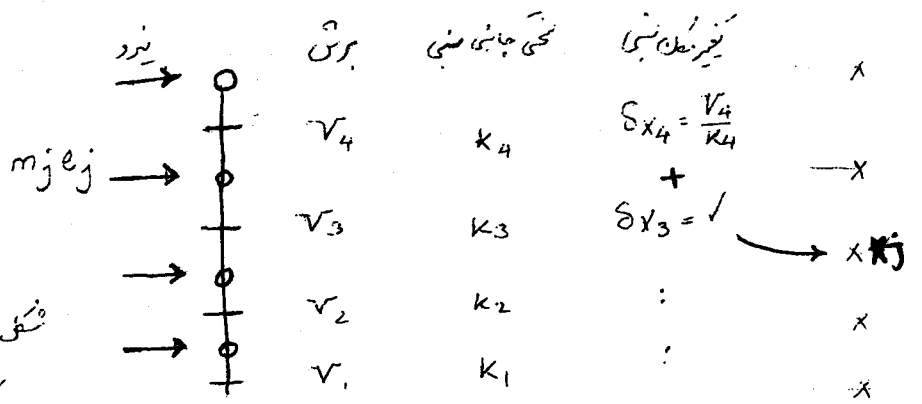 نیرو برش سختی جانبی نسبی تغییر مکان نسبی x
V₄ K₄ δx₄ = V₄/K₄
mⱼeⱼ + x
V₃ K₃ δx₃ = ✓ x xj
V₂ K₂ : x
V₁ K₁ : x